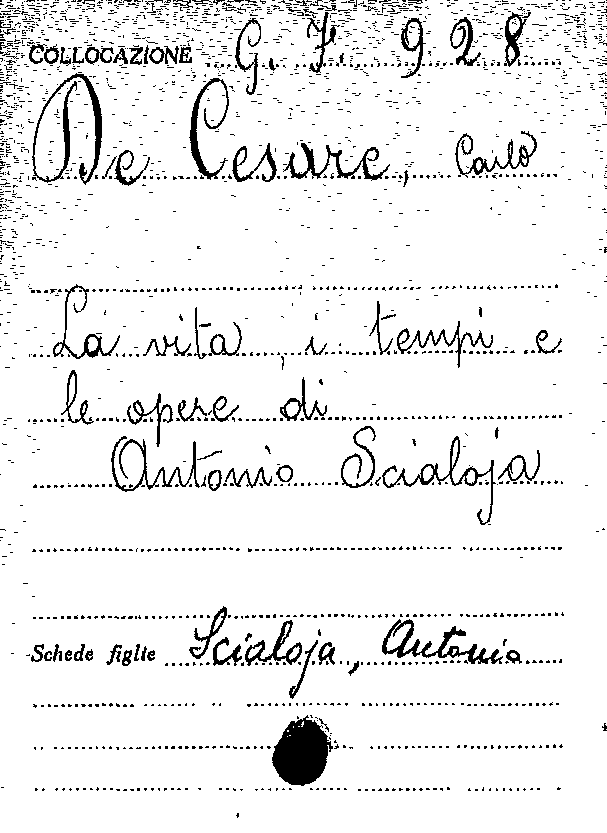 COLLOCAZIONE G. F. 928
De Cesare, Carlo
La vita, i tempi e
le opere di
Antonio Scialoja
Schede figlie Scialoja, Antonio